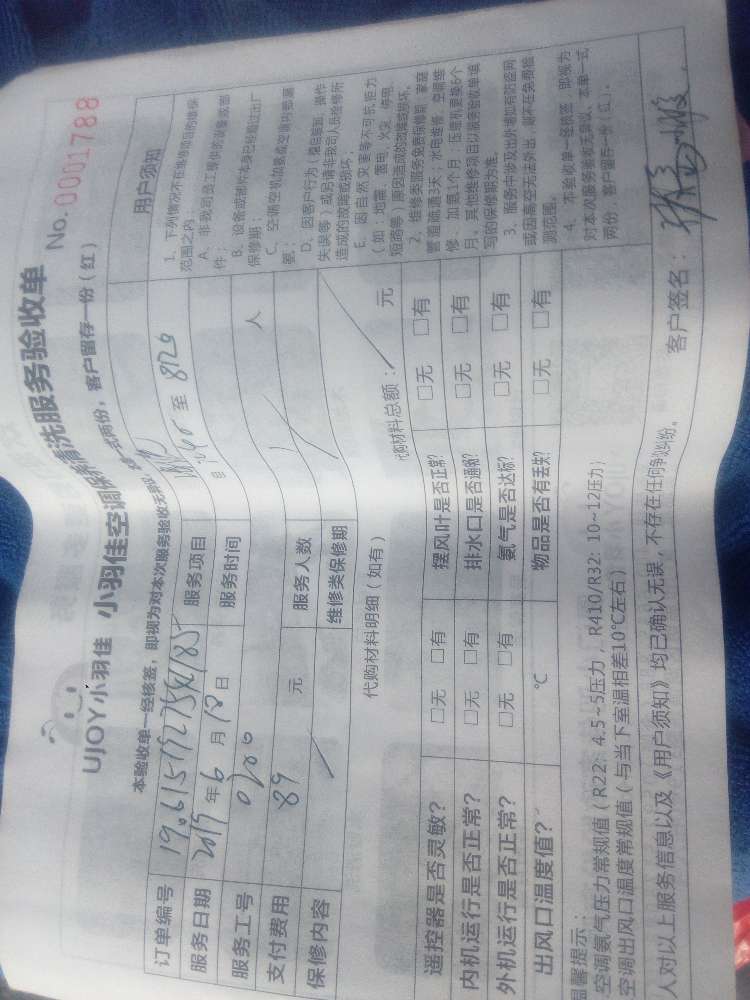 UJOY小羽佳 小羽佳空调保养清洗服务验收单 No. 0001788
本验收单一经核签，即视为对本次服务验收无异议，本单一式两份，客户留存一份（红）
订单编号
服务项目
服务日期 2019年6月18日
服务时间 至
服务工号 0200
支付费用 89 元
服务人数 人
保修内容
维修类保修期
用户须知
1、下列情况不在维修项目的维保
范围之内
A、非我司员工提供的设备或部
件；
B、设备或部件本身已经超过出厂
保修期；
C、空调空机加氨或空调内部漏
氨；
D、因客户行为（擅自搬卸、操作
失误等）或另请非我司人员检修所
造成的故障或损坏。
E、因自然灾害等不可抗拒力
（如：地震、雷电、火灾、停电、
短路等）原因造成的故障或损坏。
2、维修类服务免费保修期：家庭
管道疏通3天；水电维修、空调维
修、加氨1个月；压缩机更换6个
月。其他维修项目以服务验收单填
写的保修期为准。
3、服务中涉及出外墙如有防盗网
或因高空无法外出，则不在免费检
测范围。
4、本验收单一经核签，即视为
对本次服务验收无异议，本单一式
两份，客户留存一份（红）。
代购材料明细（如有）
代购材料总额： 元
遥控器是否灵敏？ □无 □有 摆风叶是否正常？ □无 □有
内机运行是否正常？ □无 □有 排水口是否通畅？ □无 □有
外机运行是否正常？ □无 □有 氨气是否达标？ □无 □有
出风口温度值？ ℃ 物品是否有丢失？ □无 □有
温馨提示：
空调氨气压力常规值（R22：4.5~5压力，R410/R32：10~12压力；
空调出风口温度常规值（与当下室温相差10℃左右）
人对以上服务信息以及《用户须知》均已确认无误，不存在任何争议纠纷。
客户签名：